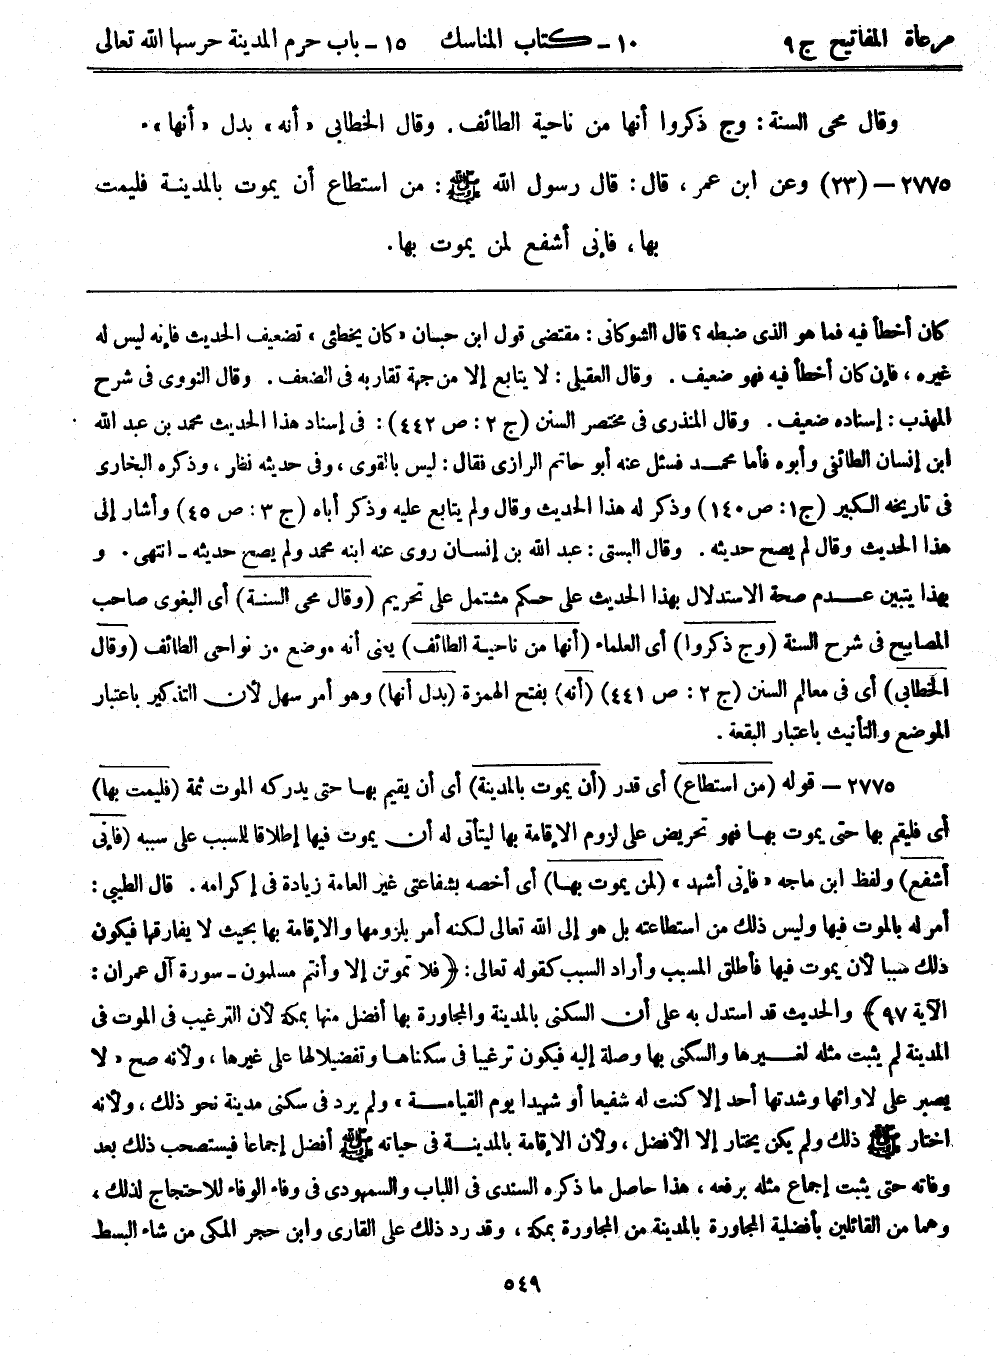 مرعاة المفاتيح ج ٩ ١٠ - كتاب المناسك ١٥ - باب حرم المدينة حرسها الله تعالى
وقال محى السنة : وج ذكروا أنها من ناحية الطائف . وقال الخطابى «أنه» بدل «أنها» .
٢٧٧٥ – (٢٣) وعن ابن عمر ، قال : قال رسول الله ﷺ : من استطاع أن يموت بالمدينة فليمت
بها ، فإنى أشفع لمن يموت بها .
كان أخطأ فيه فما هو الذى ضبطه ؟ قال الشوكانى : مقتضى قول ابن حبان «كان يخطئ» تضعيف الحديث فإنه ليس له
غيره ، فإن كان أخطأ فيه فهو ضعيف . وقال العقيلى : لا يتابع إلا من جهة تقاربه فى الضعف . وقال النووى فى شرح
المهذب : إسناده ضعيف . وقال المنذرى فى مختصر السنن (ج ٢ : ص ٤٤٢) : فى إسناد هذا الحديث محمد بن عبد الله
ابن إنسان الطائفى وأبوه فأما محمد فسئل عنه أبو حاتم الرازى فقال : ليس بالقوى ، وفى حديثه نظر ، وذكره البخارى
فى تاريخه الكبير (ج ١ : ص ١٤٠) وذكر له هذا الحديث وقال ولم يتابع عليه وذكر أباه (ج ٣ : ص ٤٥) وأشار إلى
هذا الحديث وقال لم يصح حديثه . وقال البستى : عبد الله بن إنسان روى عنه ابنه محمد ولم يصح حديثه - انتهى . و
بهذا يتبين عدم صحة الاستدلال بهذا الحديث على حكم مشتمل على تحريم (وقال محى السنة) أى البغوى صاحب
المصابيح فى شرح السنة (وج ذكروا) أى العلماء (أنها من ناحية الطائف) يعنى أنه موضع من نواحى الطائف (وقال
الخطابى) أى فى معالم السنن (ج ٢ : ص ٤٤١) (أنه) بفتح الهمزة (بدل أنها) وهو أمر سهل لأن التذكير باعتبار
الموضع والتأنيث باعتبار البقعة .
٢٧٧٥ – قوله (من استطاع) أى قدر (أن يموت بالمدينة) أى أن يقيم بها حتى يدركه الموت ثمة (فليمت بها)
أى فليقم بها حتى يموت بها فهو تحريض على لزوم الإقامة بها ليتأتى له أن يموت فيها إطلاقا للسبب على سببه (فإنى
أشفع) ولفظ ابن ماجه «فإنى أشهد» (لمن يموت بها) أى أخصه بشفاعتى غير العامة زيادة فى إكرامه . قال الطيبى :
أمر له بالموت فيها وليس ذلك من استطاعته بل هو إلى الله تعالى لكنه أمر بلزومها والإقامة بها بحيث لا يفارقها فيكون
ذلك سببا لأن يموت فيها فأطلق المسبب وأراد السبب كقوله تعالى : ﴿فلا تموتن إلا وأنتم مسلمون - سورة آل عمران :
الآية ٩٧﴾ والحديث قد استدل به على أن السكنى بالمدينة والمجاورة بها أفضل منها بمكة لأن الترغيب فى الموت فى
المدينة لم يثبت مثله لغيرها والسكنى بها وصلة إليه فيكون ترغيبا فى سكناها وتفضيلا لها على غيرها ، ولأنه صح «لا
يصبر على لاوائها وشدتها أحد إلا كنت له شفيعا أو شهيدا يوم القيامة» ولم يرد فى سكنى مدينة نحو ذلك ، ولأنه
اختار ﷺ ذلك ولم يكن يختار إلا الأفضل ، ولأن الإقامة بالمدينة فى حياته ﷺ أفضل إجماعا فيستصحب ذلك بعد
وفاته حتى يثبت إجماع مثله برفعه ، هذا حاصل ما ذكره السندى فى اللباب والسمهودى فى وفاء الوفاء للاحتجاج لذلك ،
وهما من القائلين بأفضلية المجاورة بالمدينة من المجاورة بمكة ، وقد رد ذلك على القارى وابن حجر المكى من شاء البسط
٥٤٩